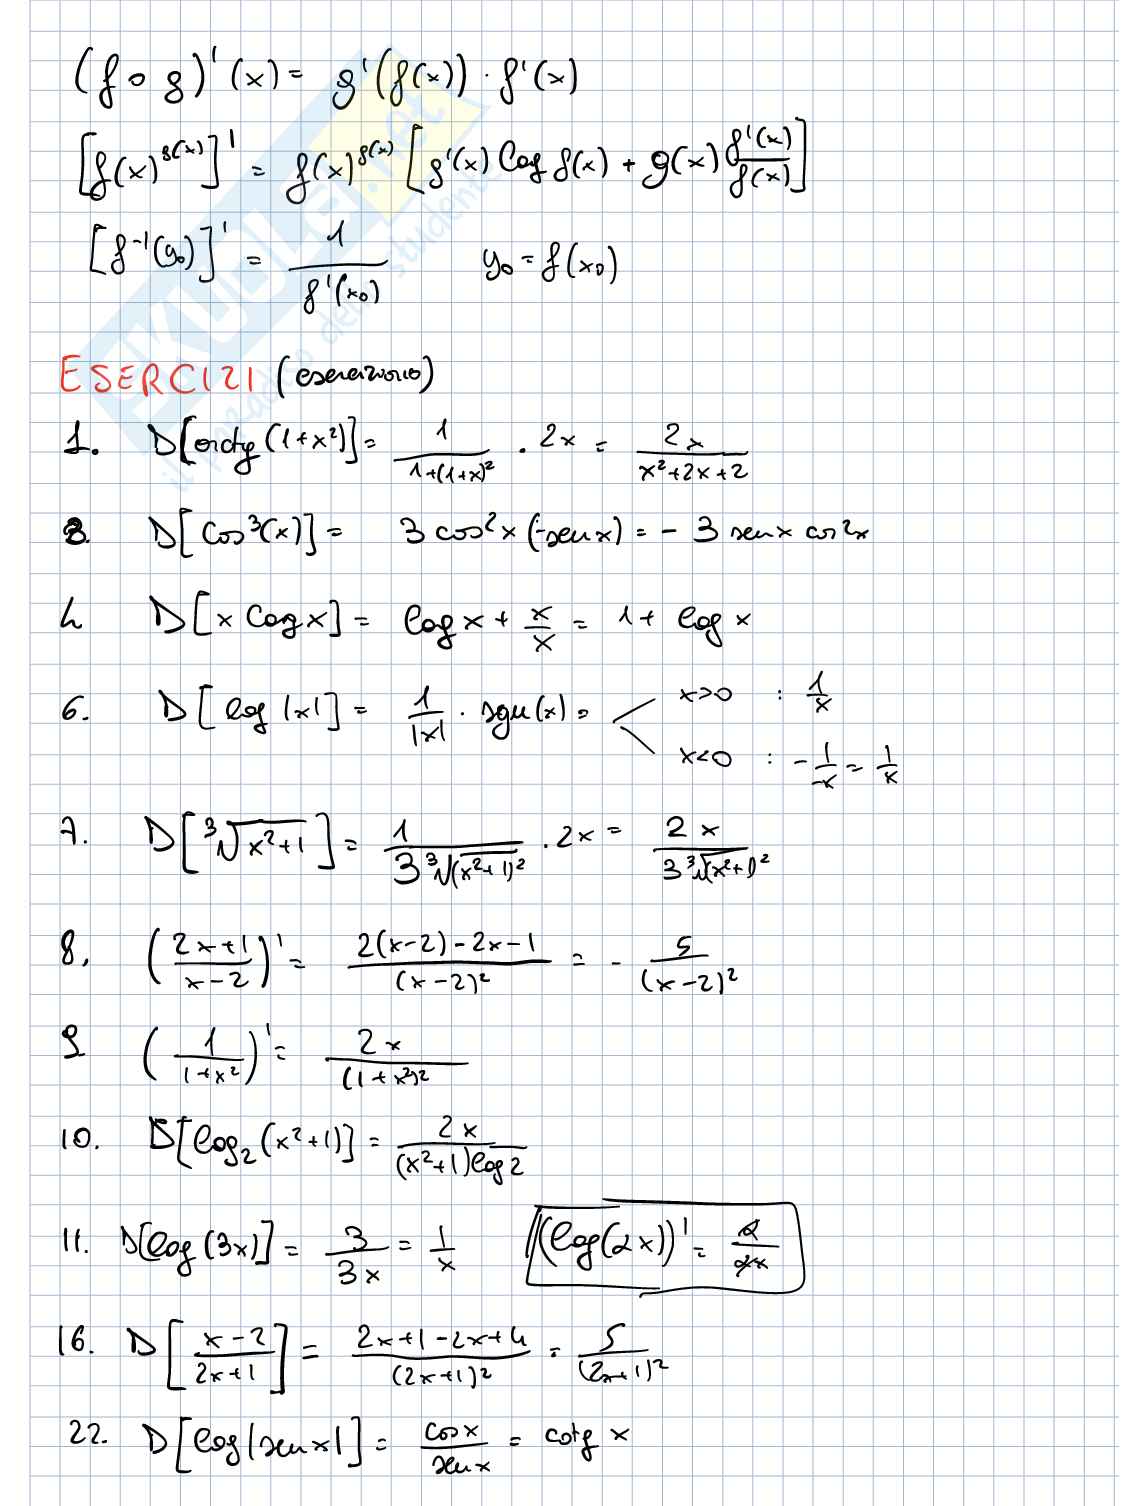 (f ∘ g)'(x) = g'(f(x)) · f'(x)
[f(x)^g(x)]' = f(x)^g(x) [g'(x) log f(x) + g(x) f'(x)/f(x)]
[f⁻¹(y₀)]' = 1/f'(x₀) y₀ = f(x₀)
ESERCIZI (eserciziario)
1. D[arctg(1+x²)] = 1/(1+(1+x)²) · 2x = 2x/(x²+2x+2)
3. D[cos³(x)] = 3 cos²x (-senx) = - 3 senx cos²x
4 D[x log x] = log x + x/x = 1 + log x
6. D[log |x|] = 1/|x| · sgn(x) = x>0 : 1/x
x<0 : -1/-x = 1/x
7. D[³√(x²+1)] = 1/(3 ³√(x²+1)²) · 2x = 2x/(3 ³√(x²+1)²)
8. ((2x+1)/(x-2))' = (2(x-2)-2x-1)/(x-2)² = - 5/(x-2)²
9 (1/(1+x²))' = 2x/(1+x²)²
10. D[log₂(x²+1)] = 2x/((x²+1)log2)
11. D[log(3x)] = 3/3x = 1/x (log(2x))' = 2/2x
16. D[(x-2)/(2x+1)] = (2x+1-2x+4)/(2x+1)² = 5/(2x+1)²
22. D[log|senx|] = cosx/senx = cotg x
SKUOLA.net